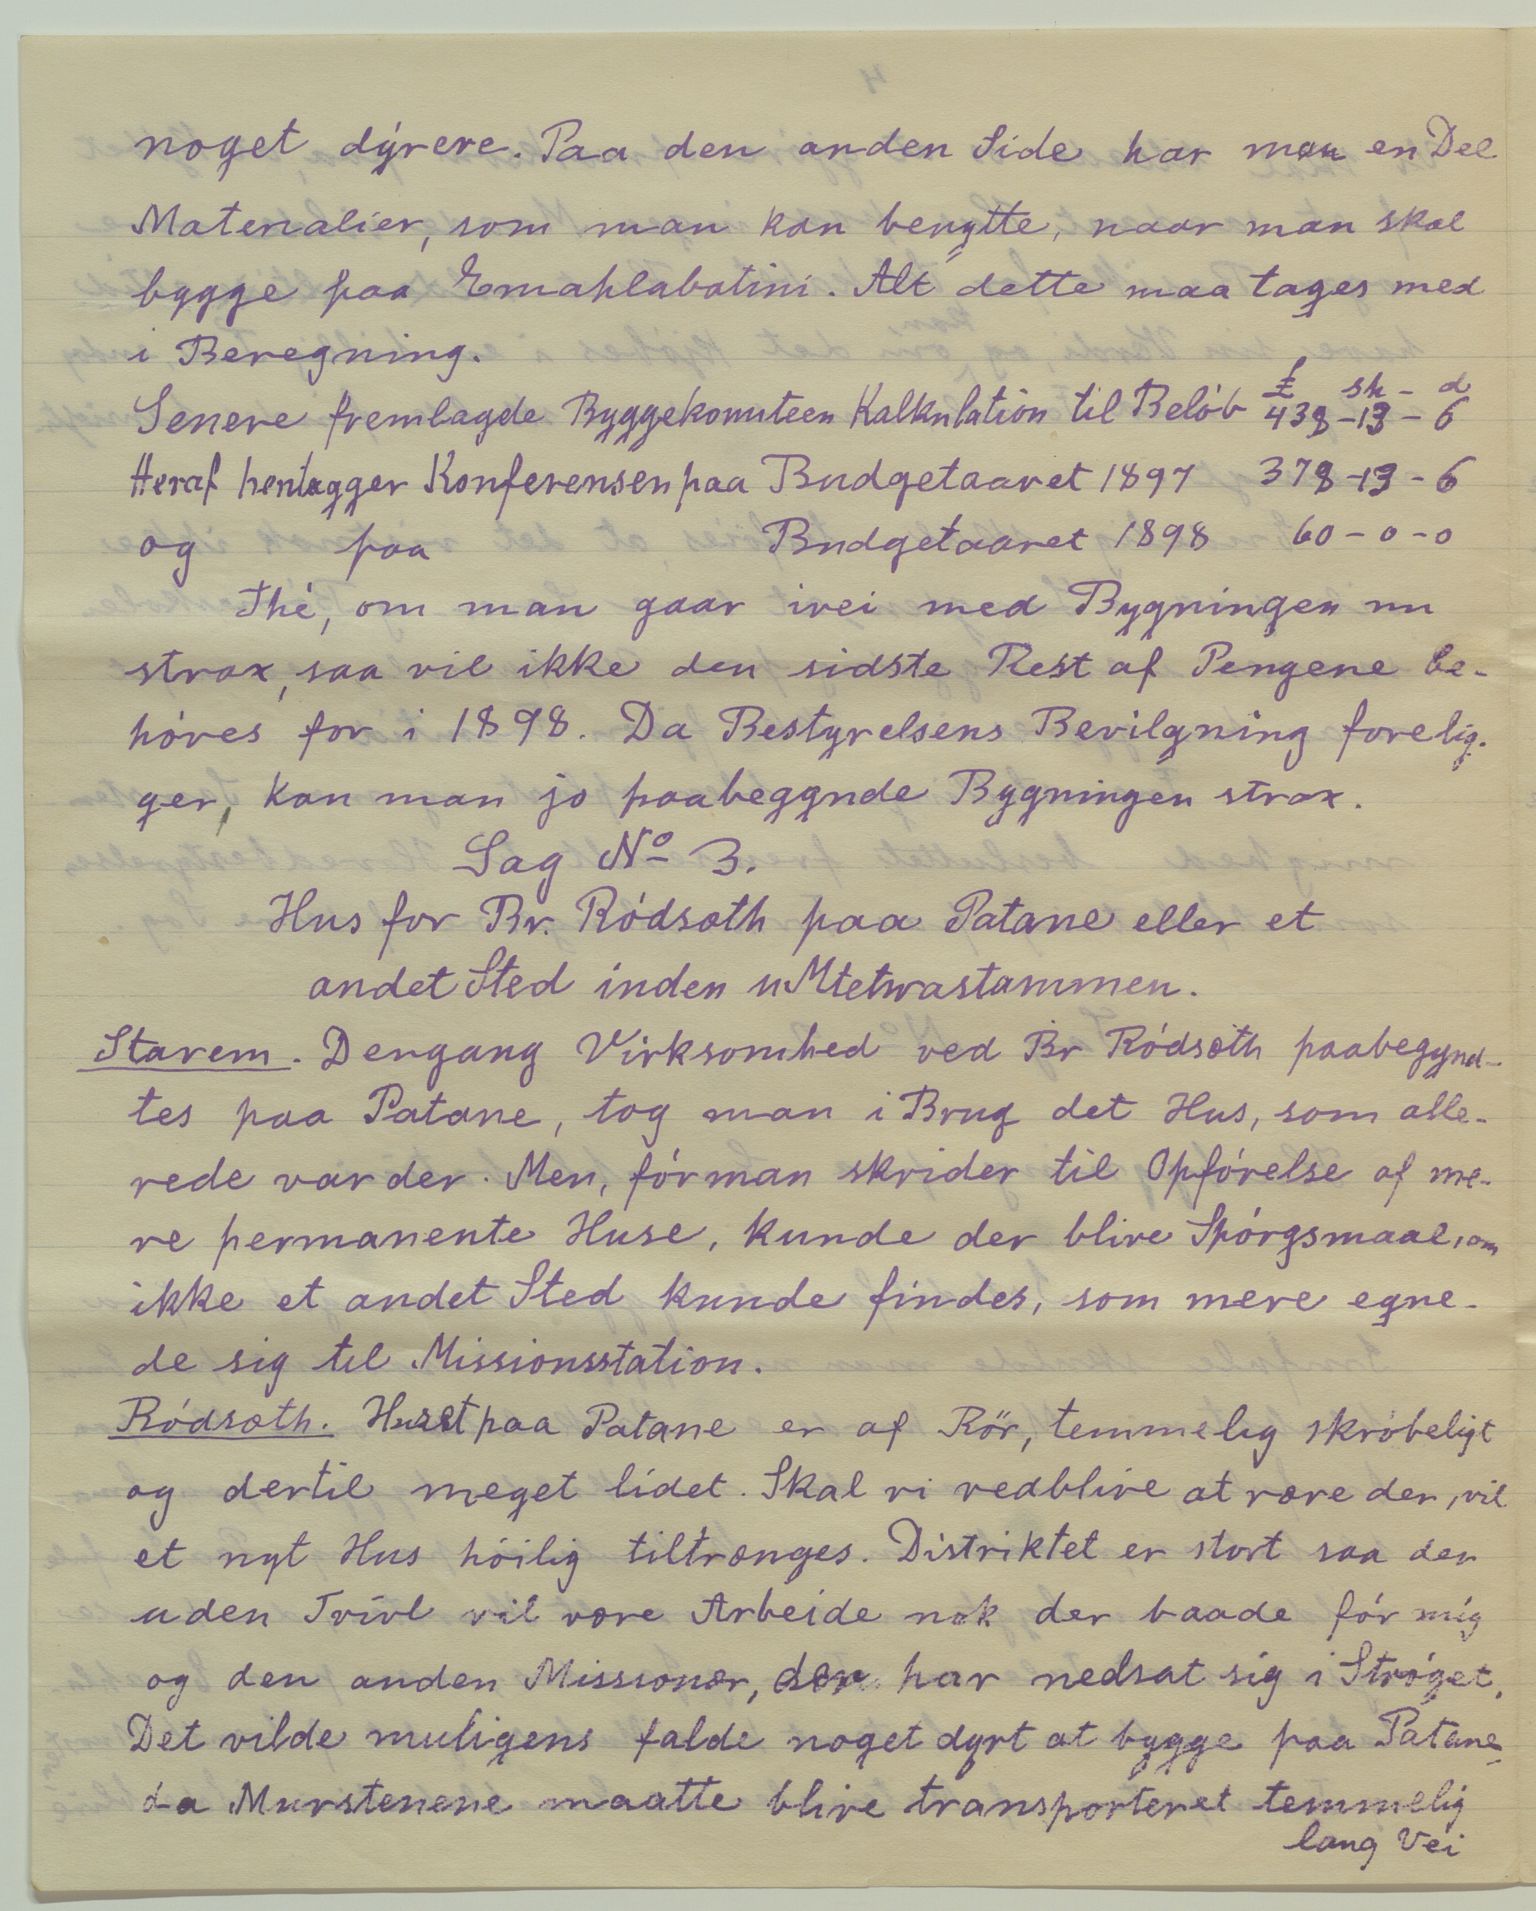 noget dýrere. Paa den anden Side har man en Del
Materialier, som man kan benytte, naar man skal
bygge paa Emahlabatini. Alt dette maa tages med
i Beregning.
£ sh - d
Senere fremlagde Byggekomiteen Kalkulation til Beløb 438-13-6
Heraf henlægger Konferensen paa Budgetaaret 1897 378-13-6
og paa Budgetaaret 1898 60-0-0
Thi, om man gaar ivei med Bygningen nu
strax, saa vil ikke den sidste Rest af Pengene be-
høves for i 1898. Da Bestyrelsens Bevilgning forelig-
ger, kan man jo paabegynde Bygningen strax.
Sag No 3.
Hus for Br. Rødsæth paa Patane eller et
andet Sted inden uMtetwastammen.
Stavem. Dengang Virksomhed ved Br Rødsæth paabegynd-
tes paa Patane, tog man i Brug det Hus, som alle-
rede var der. Men, før man skrider til Opførelse af me-
re permanente Huse, kunde der blive Spørgsmaal, om
ikke et andet Sted kunde findes, som mere egne-
de sig til Missionsstation.
Rødsæth. Huset paa Patane er af Rör, temmelig skrøbeligt
og dertil meget lidet. Skal vi vedblive at være der, vil
et nyt Hus høilig tiltrænges. Distriktet er stort saa der
uden Tvivl vil være Arbeide nok der baade før mig
og den anden Missionær, der har nedsat sig i Strøget.
Det vilde muligens falde noget dyrt at bygge paa Patane,
da Murstenene maatte blive transporteret temmelig
lang Vei